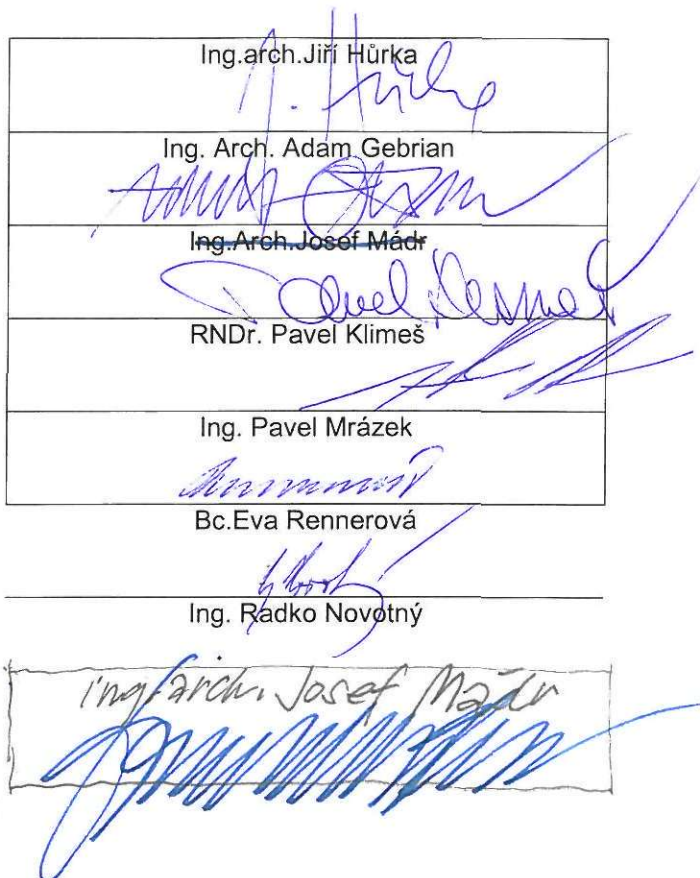 Ing.arch.Jiří Hůrka
J. Hůrka
Ing. Arch. Adam Gebrian
Ing.Arch.Josef Mádr
Pavel
RNDr. Pavel Klimeš
Ing. Pavel Mrázek
Bc.Eva Rennerová
Ing. Radko Novotný
ing. arch. Josef Mádr